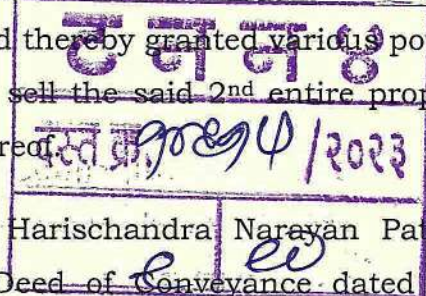 d thereby granted various po
ट न न ४
sell the said 2nd entire prop
reof
दस्त क्र. /२०२३
Harischandra Narayan Pat
Deed of Conveyance dated